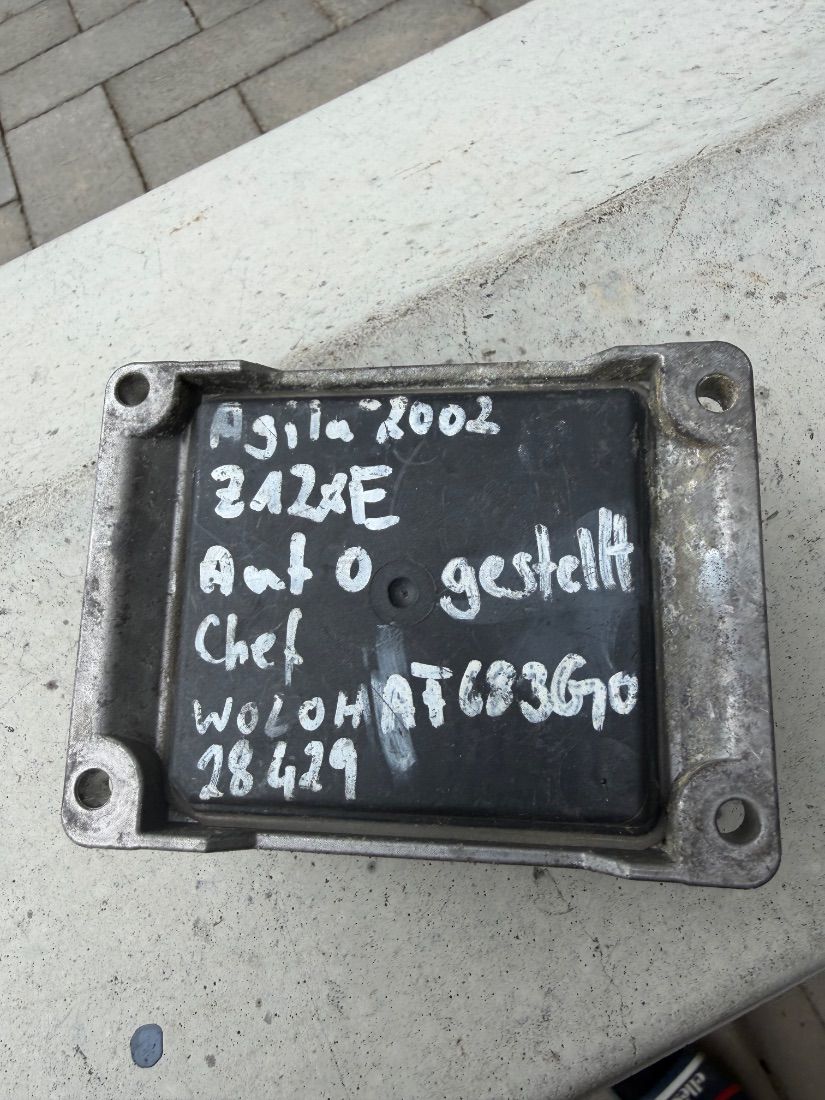 Agila 2002
Z12XE
Auto gestellt
Chef
WOLOHAF683G0
28429